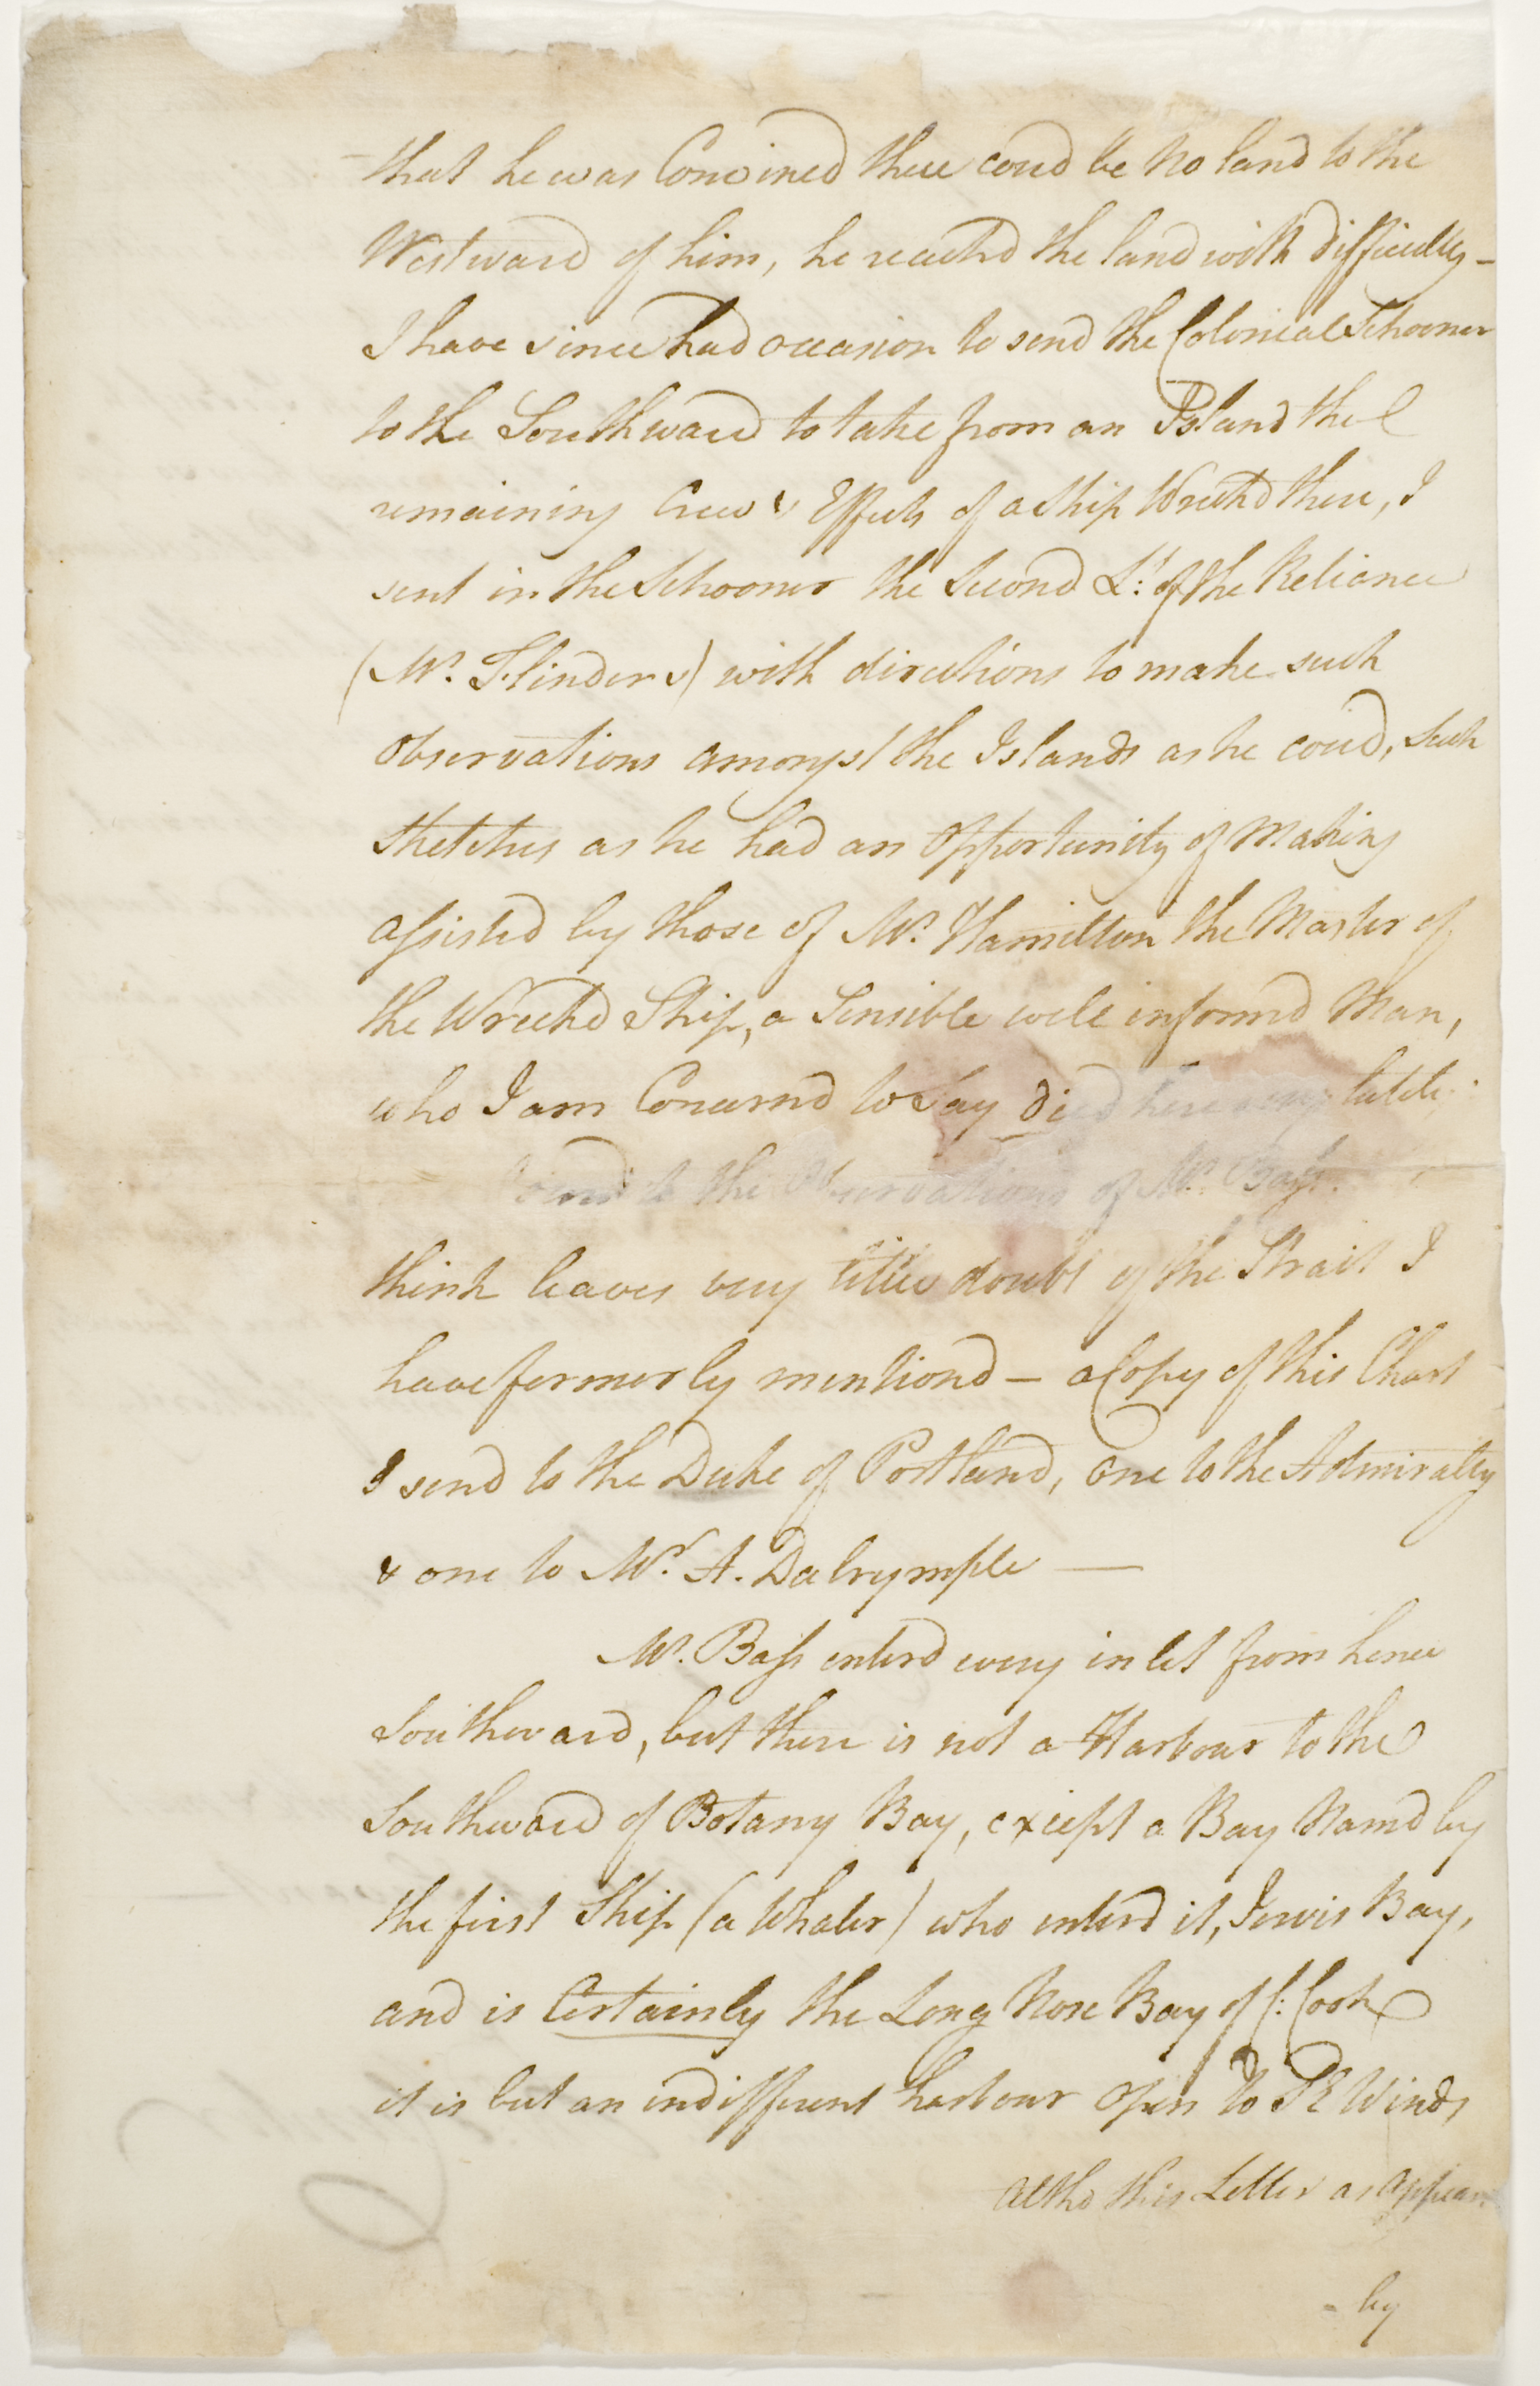 that he was Convined there coud be No land to the
Westward of him, he reachd the land with difficulty -
I have since had occasion to send the Colonial Schooner
to the Southward to take from an Island the
remaining Crew & Effects of a Ship Wreckd there, I
sent in the Schooner the Second Lt: of the Reliance
(Mr. Flinders) with directions to make such
observations amongst the Islands as he coud, Such
sketches as he had an Opportunity of Making
assisted by those of Mr. Hamilton the Master of
the Wreckd Ship, a Sensible well informd Man,
who I am Concernd to Say died here very lately
to the Observations of Mr. Bass.
think leaves very little doubt of the Strait I
have formerly mentiond - a Copy of this Chart
I send to the Duke of Portland, one to the Admiralty
& one to Mr. A. Dalrymple —
Mr. Bass enterd every inlet from hence
Southward, but there is not a Harbour to the
Southward of Botany Bay, except a Bay Namd by
the first Ship (a Whaler) who enterd it, Jervis Bay,
and is Certainly the Long Nose Bay of C: Cook
it is but an indifferent harbour open to SE Winds
Altho this Letter as appears
- by